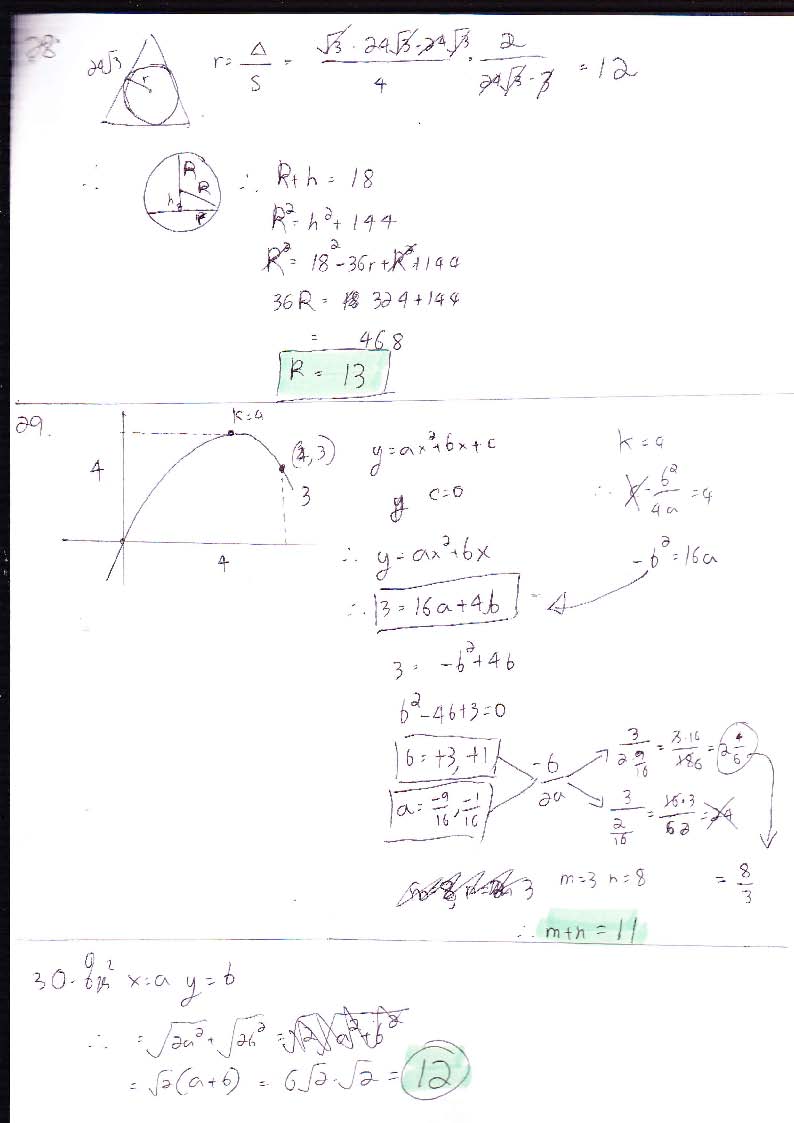 28
24√3 r r = Δ/S = √3 · 24√3 · 24√3 / 4 · 2 / 24√3 · 3 = 12
∴ R R h r ∴ R + h = 18
R² = h² + 144
R² = 18² - 36r + R² + 144
36R = 324 + 144
= 468
R = 13
29.
k = 4
4
(4, 3)
3
4
y = ax² + bx + c
y c = 0
∴ y = ax² + bx
∴ 3 = 16a + 4b
k = 4
∴ - b²/4a = 4
-b² = 16a
3 = -b² + 4b
b² - 4b + 3 = 0
b = +3, +1
a = -9/16, -1/16
-b/2a
3 / 2 9/16 = 3·16 / 18 6 = 2 4/6
3 / 2/16 = 16·3 / 2 = 24
= 8/3
m = 3 n = 8
∴ m + n = 11
30. x = a y = b
∴ = √2a² + √2b² = √2 √a² + b²
= √2 (a + b) = 6√2 · √2 = 12